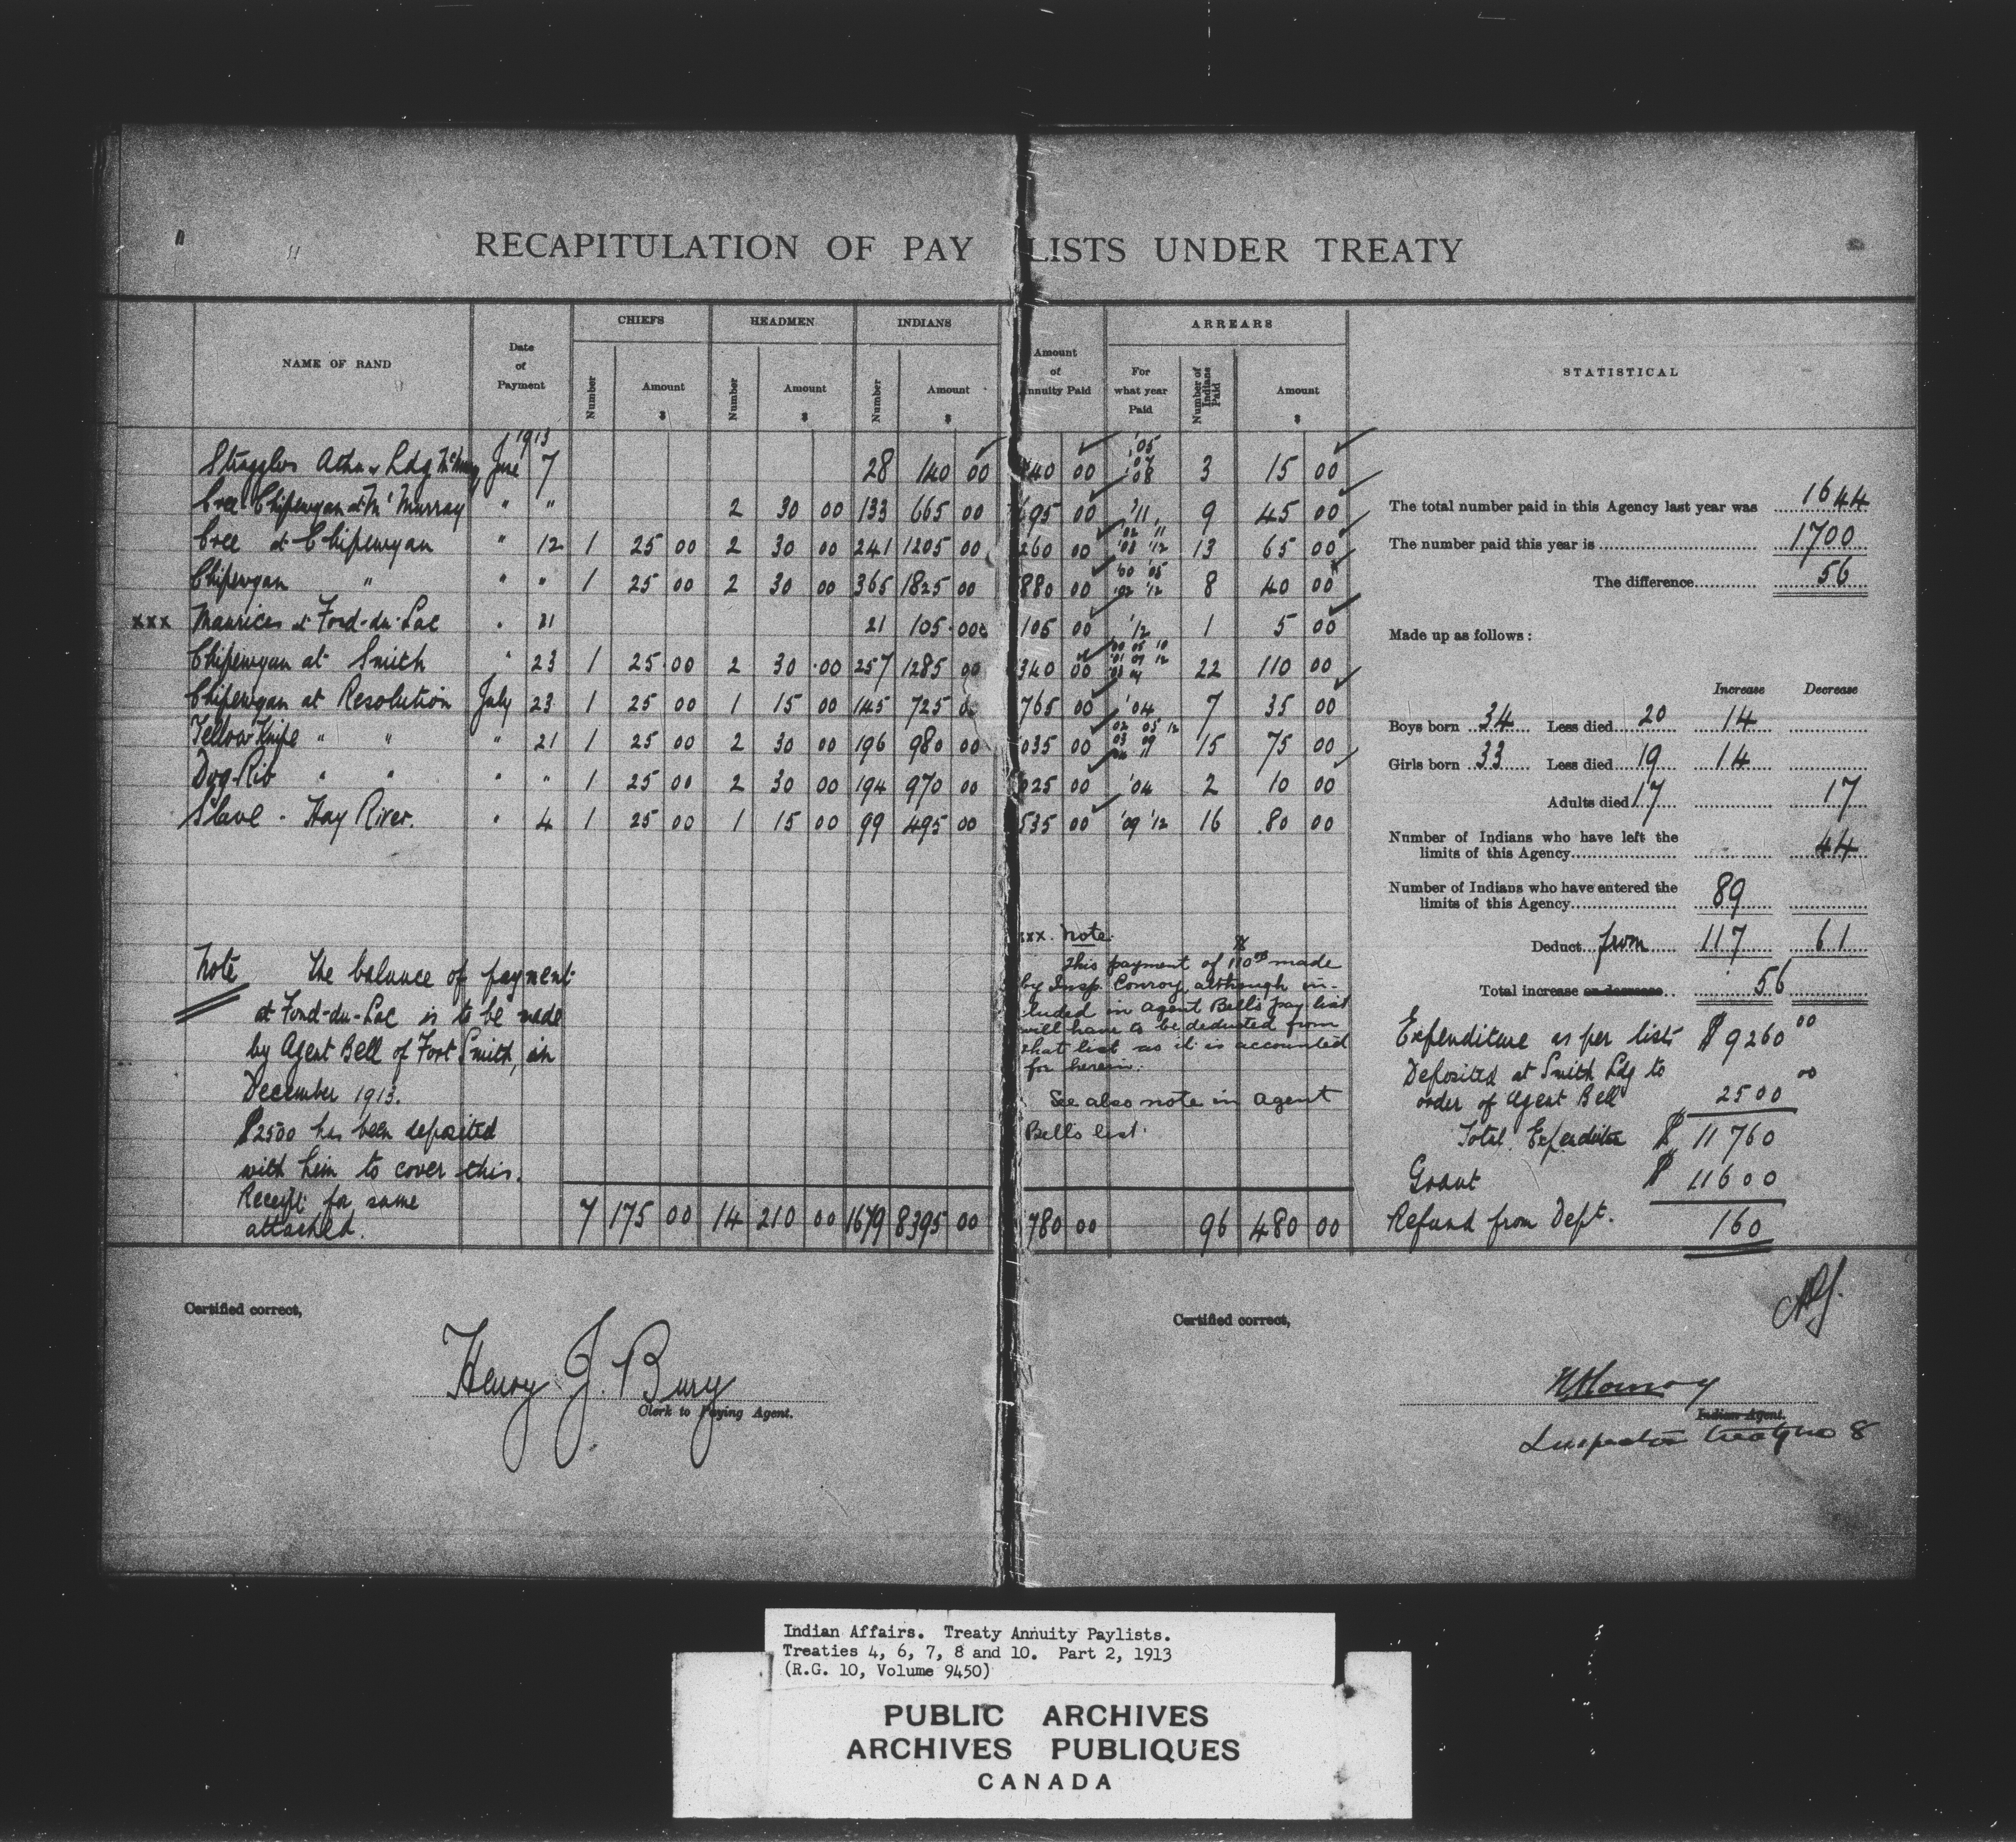 RECAPITULATION OF PAY LISTS UNDER TREATY
NAME OF BAND Date of Payment CHIEFS HEADMEN INDIANS Amount of Annuity Paid ARREARS STATISTICAL
Number Amount $ Number Amount $ Number Amount $ For what year Paid Number of Indians Paid Amount $
1913
Stragglers Atha Ldg McMurray June 7 28 140 00 140 00 '05 '07 '08 3 15 00
Cree Chipewyan at McMurray " " 2 30 00 133 665 00 695 00 '11 9 45 00
Cree at Chipewyan " 12 1 25 00 2 30 00 241 1205 00 260 00 '02 '11 '08 '12 13 65 00
Chipewyan " " " 1 25 00 2 30 00 365 1825 00 880 00 '00 '05 '02 '12 8 40 00
xxx Maurices at Fond-du-Lac " 21 21 105 00 105 00 '12 1 5 00
Chipewyan at Smith " 23 1 25 00 2 30 00 257 1285 00 340 00 22 110 00
Chipewyan at Resolution July 23 1 25 00 1 15 00 145 725 00 765 00 '04 7 35 00
Yellow Knife " " " 21 1 25 00 2 30 00 196 980 00 035 00 02 05 12 03 09 15 75 00
Dog-Rib " " " " 1 25 00 2 30 00 194 970 00 025 00 '04 2 10 00
Slave - Hay River. " 4 1 25 00 1 15 00 99 495 00 535 00 '09 '12 16 80 00
Note The balance of payment
at Fond-du-Lac is to be made
by Agent Bell of Fort Smith, in
December 1913.
$2500 has been deposited
with him to cover this.
Receipt for same
attached.
7 175 00 14 210 00 1679 8395 00 780 00 96 480 00
xxx. Note.
This payment of 110 00 made
by Insp. Conroy although in-
luded in Agent Bell's pay list
will have to be deducted from
that list as it is accounted
for herein.
See also note in Agent
Bell's list.
The total number paid in this Agency last year was 1644
The number paid this year is 1700
The difference 56
Made up as follows:
Increase Decrease
Boys born 34 Less died 20 14
Girls born 33 Less died 19 14
Adults died 17 17
Number of Indians who have left the
limits of this Agency 44
Number of Indians who have entered the
limits of this Agency 89
Deduct from 117 61
Total increase or decrease 56
Expenditure as per lists $ 9260 00
Deposited at Smith Ldg to
order of Agent Bell 2500 00
Total Expenditure $ 11760
Grant $ 11600
Refund from Dept. 160
Certified correct,
Henry J. Bury
Clerk to Paying Agent.
Certified correct,
H Conroy
Indian Agent.
Inspector Treaty No 8
Indian Affairs. Treaty Annuity Paylists.
Treaties 4, 6, 7, 8 and 10. Part 2, 1913
(R.G. 10, Volume 9450)
PUBLIC ARCHIVES
ARCHIVES PUBLIQUES
CANADA